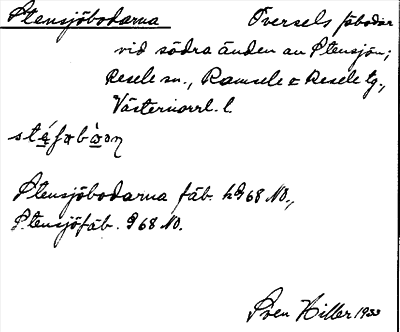 Stensjöbodarna Översels fäbodar
vid södra änden av Stensjön;
Resele sn., Ramsele o Resele tg.,
Västernorrl. l.
Stensjöbodarna fäb. 68 NO.,
Stensjöfäb. 68 NO.
Sven Hiller 1933